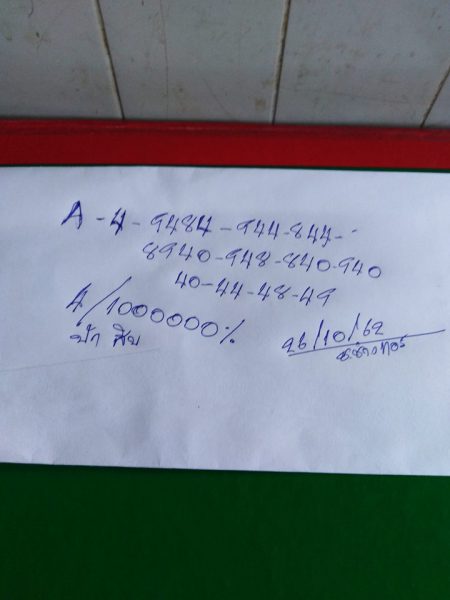 A - 4 - 9484 - 944-844-
8940-948-840-940
40-44-48-49
4/1000000%
ปัก สิบ
26/10/62